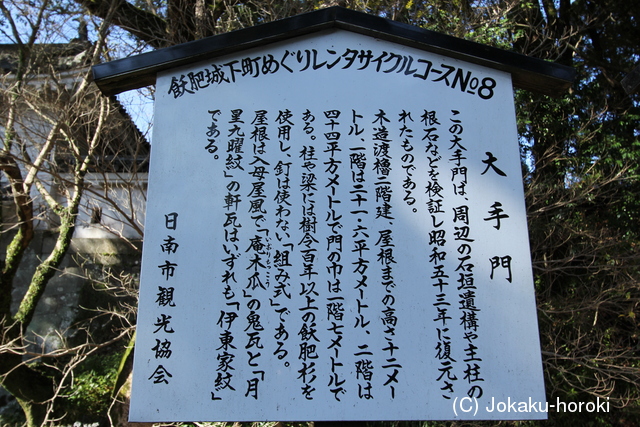 飫肥城下町めぐりレンタサイクルコース№8
大手門
この大手門は、周辺の石垣遺構や主柱の
根石などを検証し昭和五十三年に復元さ
れたものである。
木造渡櫓二階建、屋根までの高さ十二メー
トル、一階は二十一・六平方メートル、二階は
四十四平方メートルで門の巾は一階七メートルで
ある。柱や梁には樹令百年以上の飫肥杉を
使用し、釘は使わない「組み式」である。
屋根は入母屋風で「庵木瓜」の鬼瓦と「月
いおりもっこう
星九曜紋」の軒瓦はいずれも「伊東家紋」
である。
日南市観光協会
(C) Jokaku-horoki